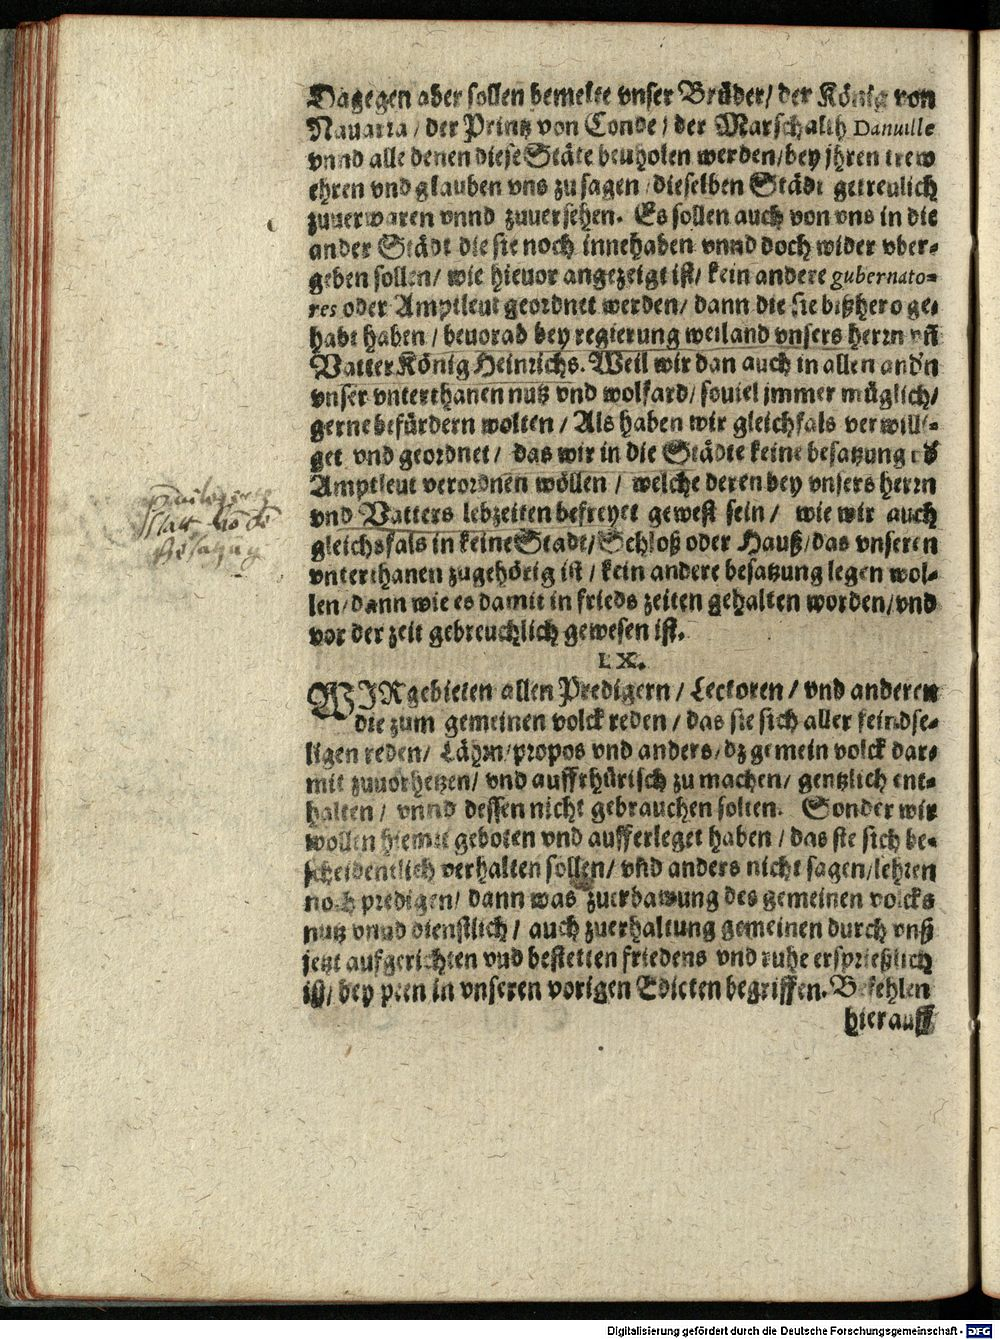 Dagegen aber sollen bemelte vnser Brüder/ der König von
Nauarra/ der Printz von Conde/ der Marschalch Danuille
vnnd alle denen diese Stäte beuholen werden/ bey jhren trew
ehren vnd glauben vns zu sagen/ dieselben Städt getreulich
zuuerwaren vnnd zuuersehen. Es sollen auch von vns in die
ander Städt die sie noch innehaben vnnd doch wider vber-
geben sollen/ wie hieuor angezeigt ist/ kein andere gubernato-
res oder Amptleut geordnet werden/ dann die sie bißhero ge-
habt haben/ beuorab bey regierung weiland vnsers herrn vñ
Vatter König Heinrichs. Weil wir dan auch in allen and'n
vnser vnterthanen nutz vnd wolfard/ souiel jmmer müglich/
gerne befürdern wolten/ Als haben wir gleichfals verwilli-
get vnd geordnet/ das wir in die Städte keine besatzung
Amptleut verordnen wöllen/ welche deren bey vnsers herrn
vnd Vatters lebzeiten befreyet gewest sein/ wie wir auch
gleichsfals in keine Stadt/ Schloß oder Hauß/ das vnseren
vnterthanen zugehörig ist/ kein andere besatzung legen wol-
len/ dann wie es damit in frieds zeiten gehalten worden/ vnd
vor der zeit gebreuchlich gewesen ist.
LX.
WIR gebieten allen Predigern/ Lectoren/ vnd anderen
die zum gemeinen volck reden/ das sie sich aller feindse-
ligen reden/ Lähm/ propos vnd anders/ dz gemein volck dar-
mit zuuorhetzen/ vnd auffrhürisch zu machen/ gentzlich ent-
halten/ vnnd dessen nicht gebrauchen solten. Sonder wir
wollen hiemit geboten vnd aufferleget haben/ das sie sich be-
scheidentlich verhalten sollen/ vnd anders nicht sagen/ lehren
noch predigen/ dann was zuerbawung des gemeinen volcks
nutz vnnd dienstlich/ auch zuerhaltung gemeinen durch vnß
jetzt aufgerichten vnd bestetten friedens vnd ruhe ersprießlich
ist/ bey peen in vnseren vorigen Edicten begriffen. Befehlen
hierauff
Digitalisierung gefördert durch die Deutsche Forschungsgemeinschaft - DFG